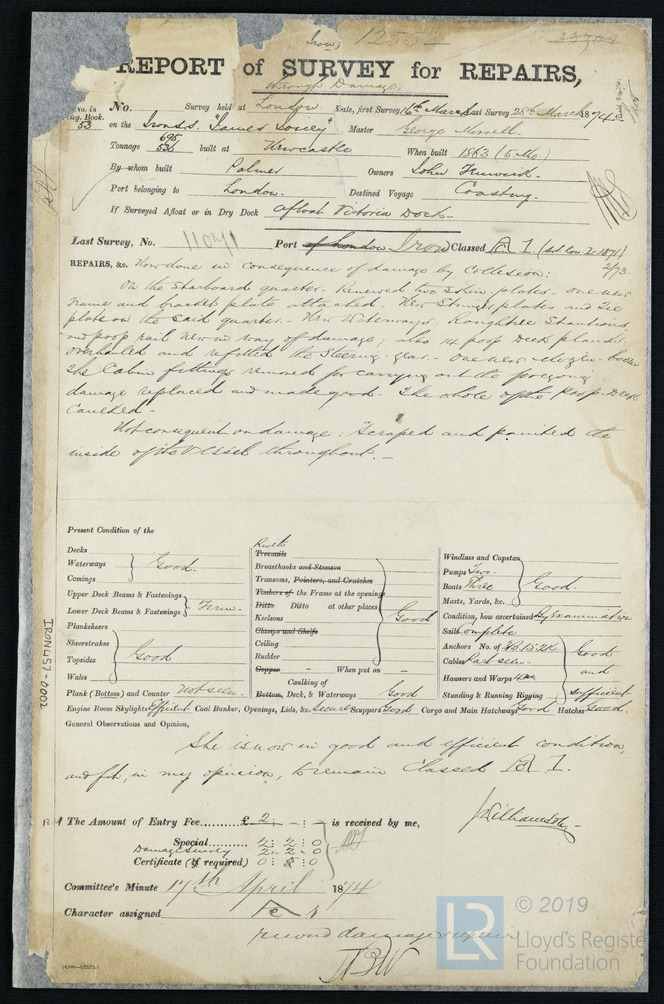 Iron
1255
REPORT of SURVEY for REPAIRS,
through Damage
No. in Reg. Book. 53
No. Survey held at London Date, first Survey 16th March Last Survey 28th March 1874
on the Iron S.S. "James Joicey" Master George Morrell
Tonnage 695 536 built at Newcastle When built 1863 (5 Mo)
By whom built Palmer Owners John Fenwick
Port belonging to London. Destined Voyage Coasting.
If Surveyed Afloat or in Dry Dock Afloat Victoria Dock
Last Survey, No. Port of London Iron Classed A 1
2/73
REPAIRS, &c. Now done in consequence of damage by Collision:
On the Starboard quarter - Renewed two Skin plates - One new
frame and bracket plate attached. New Stringer plates and Tie
plate on the said quarter - New Waterways - Roughtree Stanchions,
and poop rail new in way of damage; also 14 poop Deck planks
overhauled and refitted the Steering gear - One new
The Cabin fittings removed for carrying out the foregoing
damage replaced and made good - The whole of the Poop Deck
Caulked -
Not consequent on damage: Scraped and painted the
inside of the Vessel throughout. -
Present Condition of the
Decks
Waterways
Comings
Good.
Upper Deck Beams & Fastenings
Lower Deck Beams & Fastenings
Firm
Planksheers
Sheerstrakes
Topsides
Wales
Good
Plank (Bottom) and Counter not seen
Rivets
Treenails
Breasthooks and Stemson
Transoms, Pointers, and Crutches
Timbers of the Frame at the openings
Ditto Ditto at other places
Keelsons
Clamps and Shelfs
Ceiling
Rudder
Good
Copper — When put on —
Caulking of
Bottom, Deck, & Waterways Good
Windlass and Capstan
Pumps Two.
Boats Three
Masts, Yards, &c.
Good.
Condition, how ascertained By Examination
Sails Complete
Anchors No. of
Cables Part seen
Hawsers and Warps
Standing & Running Rigging
Good
and
sufficient
Engine Room Skylights Efficient Coal Bunker, Openings, Lids, &c. Secure Scuppers Good Cargo and Main Hatchways Good Hatches Good
General Observations and Opinion,
She is now in good and efficient condition,
and fit, in my opinion, to remain Classed A 1.
The Amount of Entry Fee......... £ 2 : - : - is received by me,
Special......... 2 : 2 : 0
Damage Survey 2 : 2 : 0
Certificate (if required) 0 : 5 : 0
J Williamson
Committee's Minute 17th April 1874
Character assigned
record damage repairs
IRON457-0002
© 2019
LR
Lloyd's Registe
Foundation